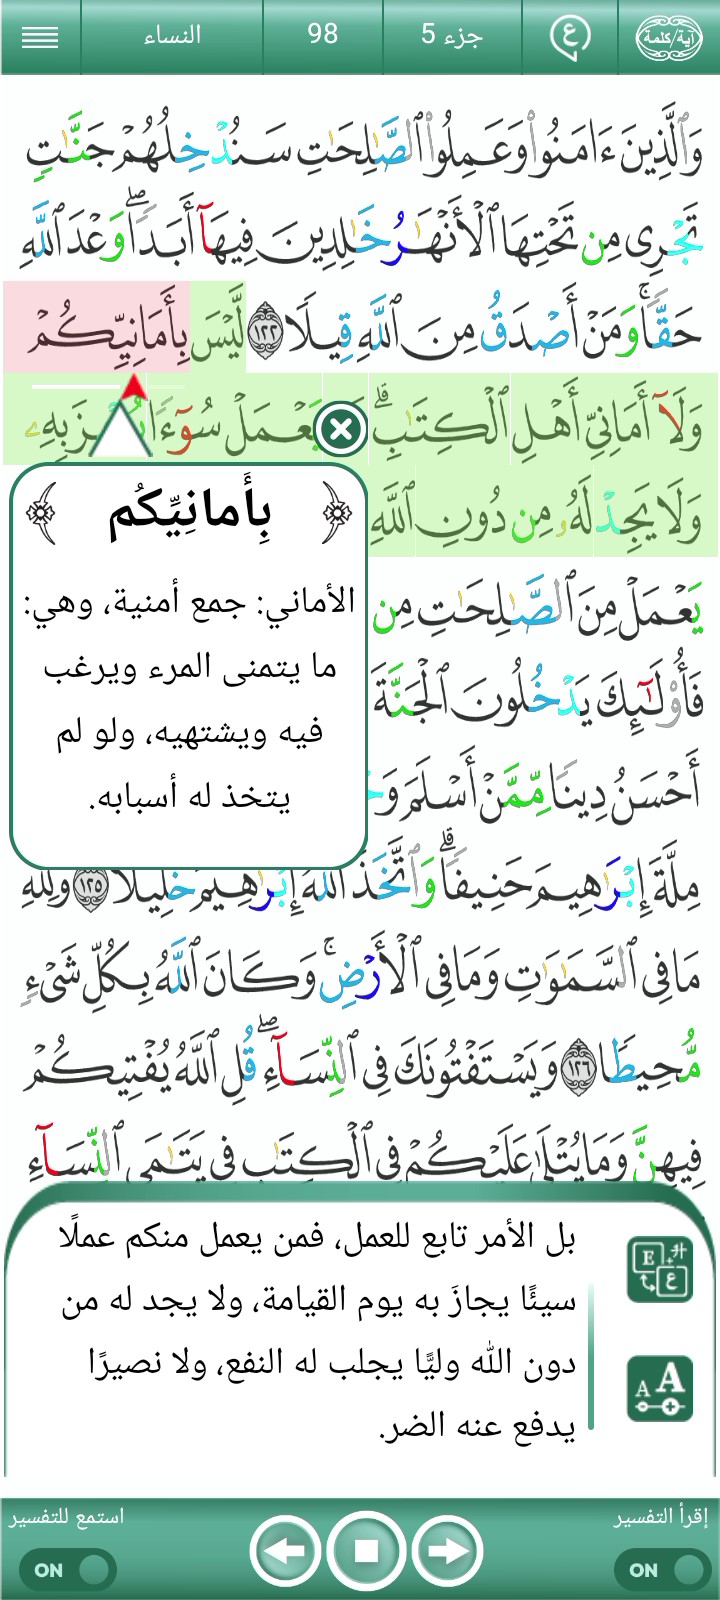 آية/كلمة
ع
جزء 5
98
النساء
وَٱلَّذِينَ ءَامَنُوا۟ وَعَمِلُوا۟ ٱلصَّـٰلِحَـٰتِ سَنُدْخِلُهُمْ جَنَّـٰتٍ
تَجْرِى مِن تَحْتِهَا ٱلْأَنْهَـٰرُ خَـٰلِدِينَ فِيهَآ أَبَدًا ۖ وَعْدَ ٱللَّهِ
حَقًّا ۚ وَمَنْ أَصْدَقُ مِنَ ٱللَّهِ قِيلًا ١٢٢ لَّيْسَ بِأَمَانِيِّكُمْ
وَلَآ أَمَانِىِّ أَهْلِ ٱلْكِتَـٰبِ ۗ يَعْمَلْ سُوٓءًا بِهِۦ
وَلَا يَجِدْ لَهُۥ مِن دُونِ ٱللَّهِ
يَعْمَلْ مِنَ ٱلصَّـٰلِحَـٰتِ مِن
فَأُو۟لَـٰٓئِكَ يَدْخُلُونَ ٱلْجَنَّةَ
أَحْسَنُ دِينًا مِّمَّنْ أَسْلَمَ
مِلَّةَ إِبْرَٰهِيمَ حَنِيفًا ۗ وَٱتَّخَذَ ٱللَّهُ إِبْرَٰهِيمَ خَلِيلًا ١٢٥ وَلِلَّهِ
مَا فِى ٱلسَّمَـٰوَٰتِ وَمَا فِى ٱلْأَرْضِ ۚ وَكَانَ ٱللَّهُ بِكُلِّ شَىْءٍ
مُّحِيطًا ١٢٦ وَيَسْتَفْتُونَكَ فِى ٱلنِّسَآءِ ۖ قُلِ ٱللَّهُ يُفْتِيكُمْ
فِيهِنَّ وَمَا يُتْلَىٰ عَلَيْكُمْ فِى ٱلْكِتَـٰبِ فِى يَتَـٰمَى ٱلنِّسَآءِ
بِأَمانِيِّكُم
الأماني: جمع أمنية، وهي:
ما يتمنى المرء ويرغب
فيه ويشتهيه، ولو لم
يتخذ له أسبابه.
بل الأمر تابع للعمل، فمن يعمل منكم عملًا
سيئًا يجازَ به يوم القيامة، ولا يجد له من
دون الله وليًّا يجلب له النفع، ولا نصيرًا
يدفع عنه الضر.
E ع
A A
إقرأ التفسير
استمع للتفسير
ON
ON